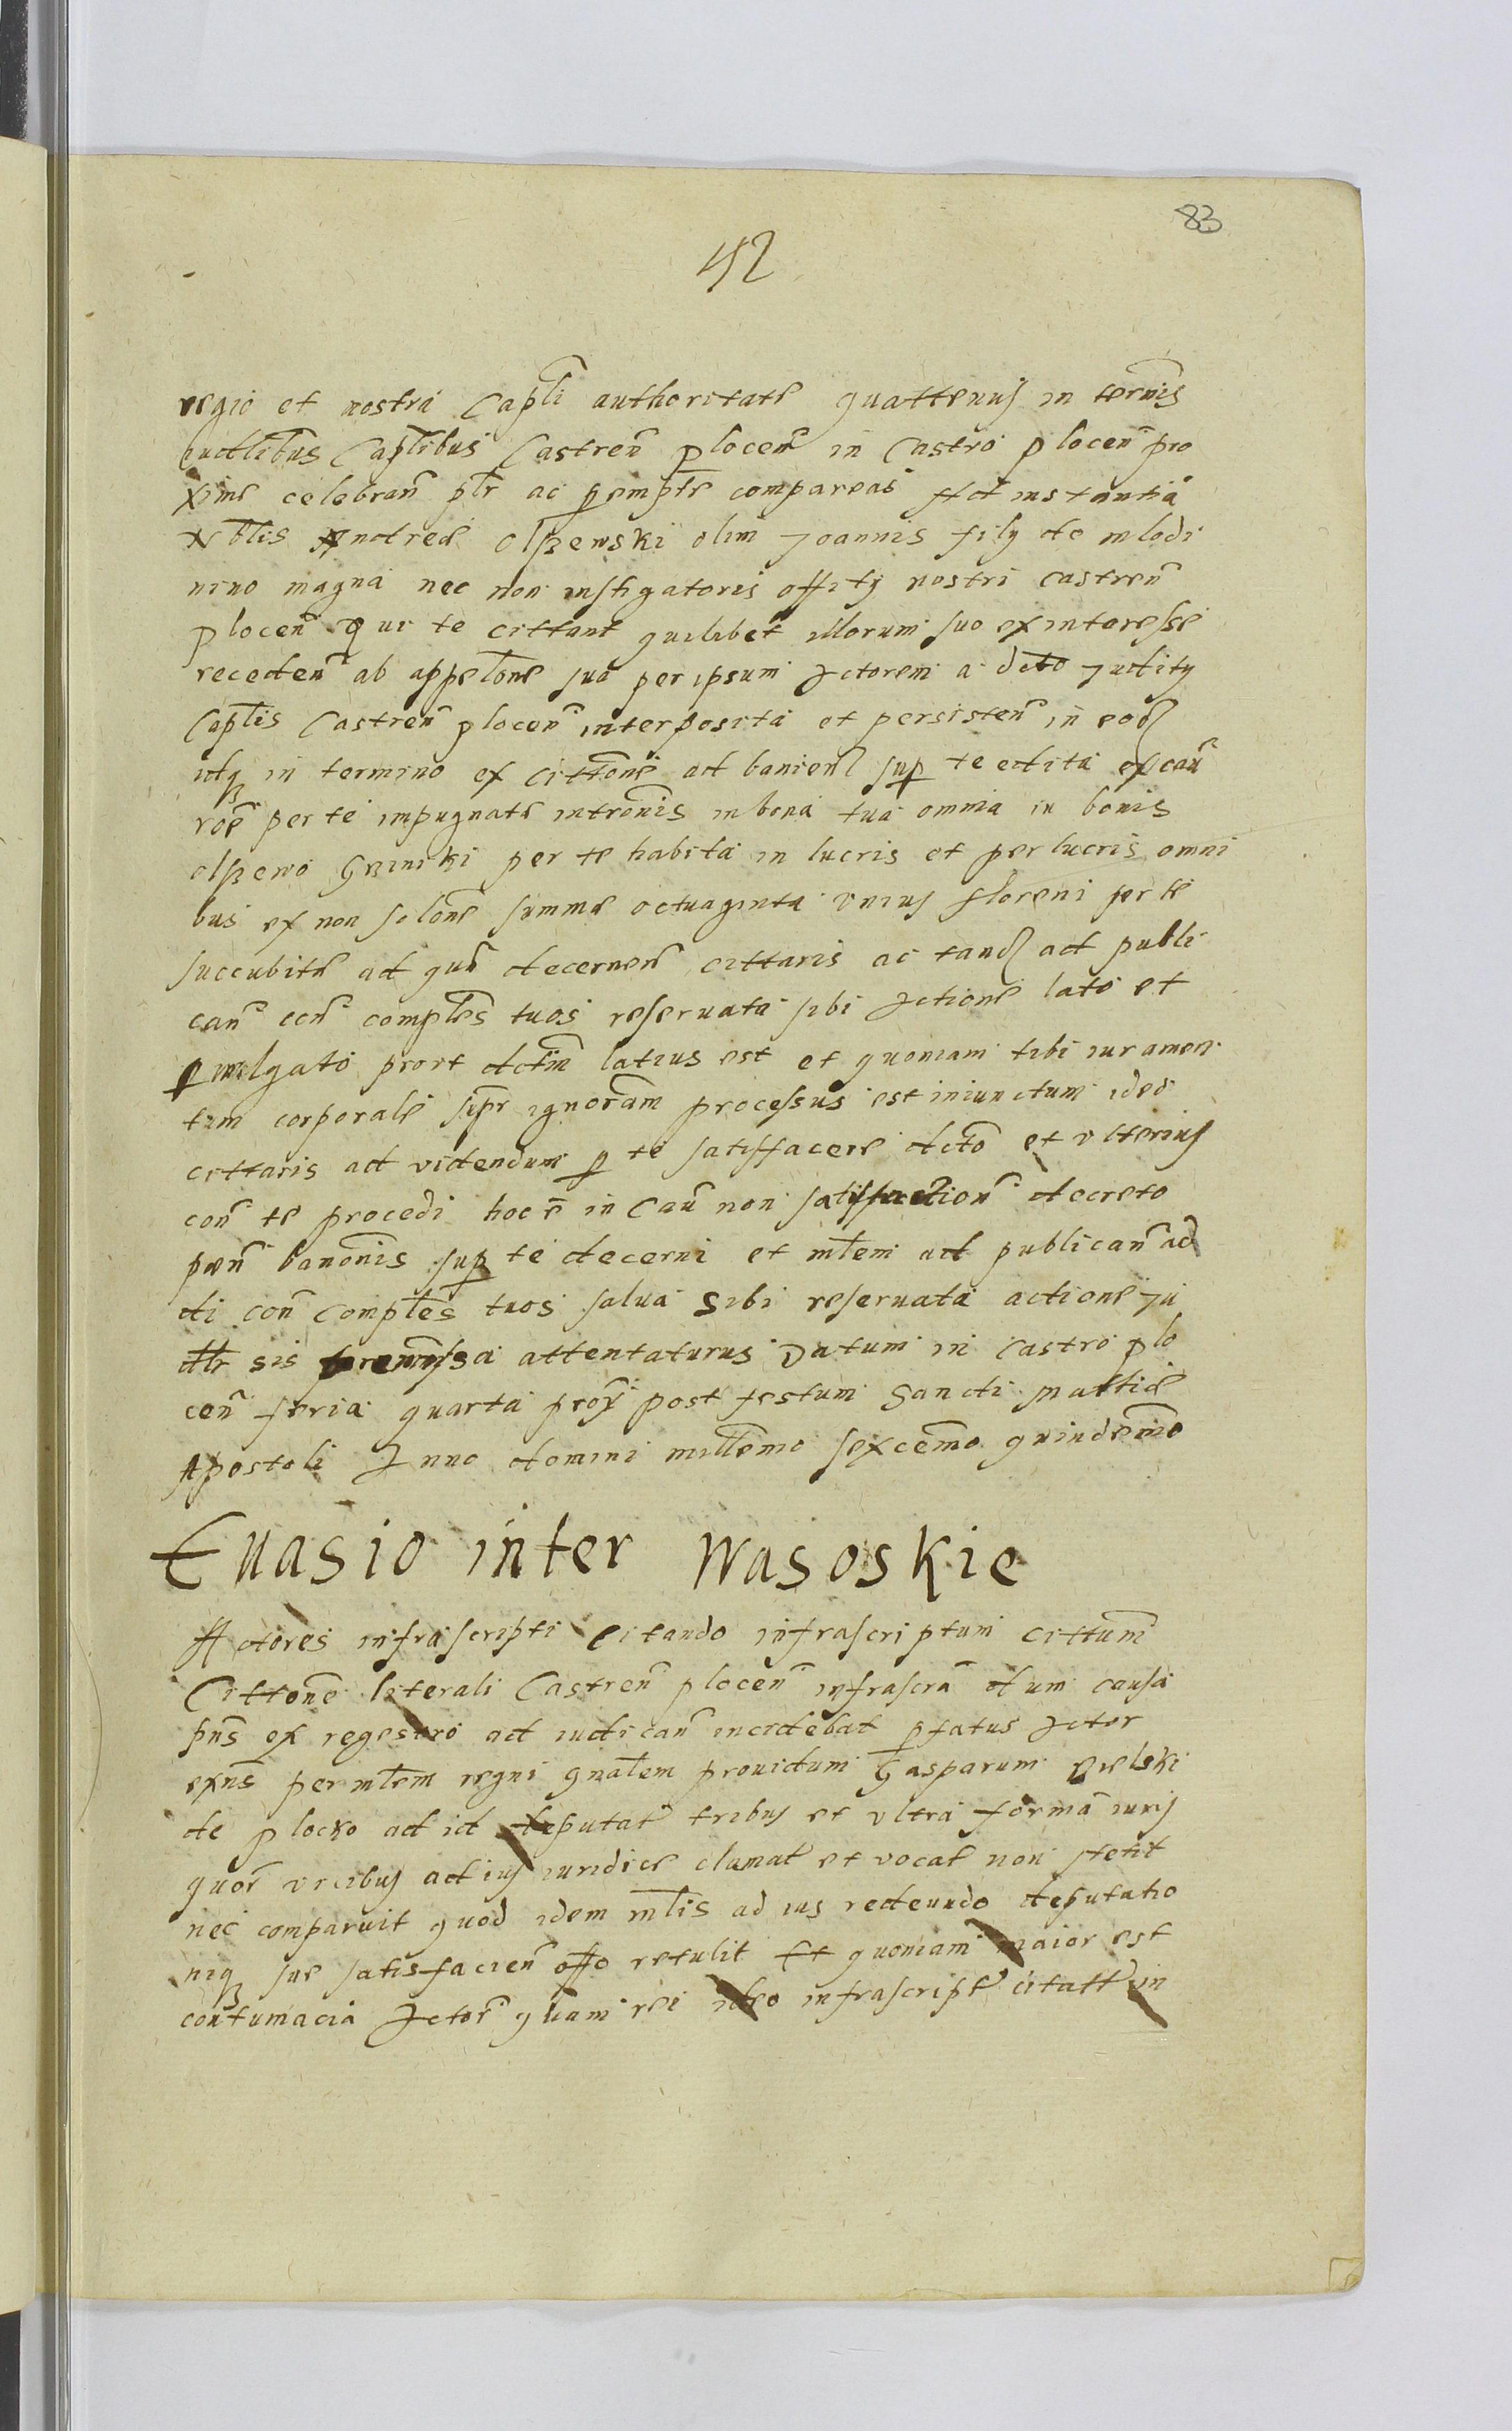 83
152
regio et nostra Capłi authoritate quattenus in termis
iudtlibus Capłibus Castreñ plocen̄ in Castro plocen̄ pro
xime celebrañ ptr ac perempte compareas Ad instantia
Nobłis Andreæ Olszewski olim Joannis filij de mlodi
nino magna nec non instigatoris offitij nostri castreñ
plocen̄ qui te cittant quilibet illorum suo ex interesse
recedeñ ab appelōne sua per ipsum Actorem a dcto Juditij
Capłis Castreñ plocen̄ interposita et persisteñ in eod
idq in termino ex cittōne ad banien sup te edita ex cau
roē per te impugnatæ intromīs in bona tua omnia in bonis
olszewo Grzinki per te habita in lucris et per lucris omni
bus ex non solōne summæ octuaginta unius floreni per te
succubitæ ad quā decerneñ cittaris ac tand ad publi
cañ coñ compłes tuos reservata sibi Actione lato et
p mulgato prout dctm latius est et quoniam tibi iuramen
tum corporale supr ignorām processus est iniunctum ideo
cittaris ad videndum p te satisfacere dcto et ulterius
coñ te procedi hoc ē in Cau non satisfactioñ decreto
pœñ banonis sup te decerni et młem ad publicañ ad
di coñ compłes tuos salua sibi reservata actione Ju
dtr sis premissa attentaturus Datum in Castro plo
cen̄ feria quarta prox post festum Sancti Mattiæ
Apostoli Anno domini millemo sexcemo quindemo
Evasio inter Wasoskie
Actores infrascripti citando infrascriptum cittum
Cittōne literali Castreñ plocen̄ infrascrā dum causa
pñs ex regestro ad iudicañ incidebat pfatus Actor
exñs per młem regni gnałem providum Gasparum Bielski
de plocko ad id deputat tribus et ultra formā iuris
quor vicibus ad ius iuridice clamat et vocat non stetit
nec comparuit quod idem młis ad ius reddeundo deputatio
niq suæ satisfacieñ offo retulit Et quoniam maior est
contumacia Actor quam rei ideo infrascript citatt in